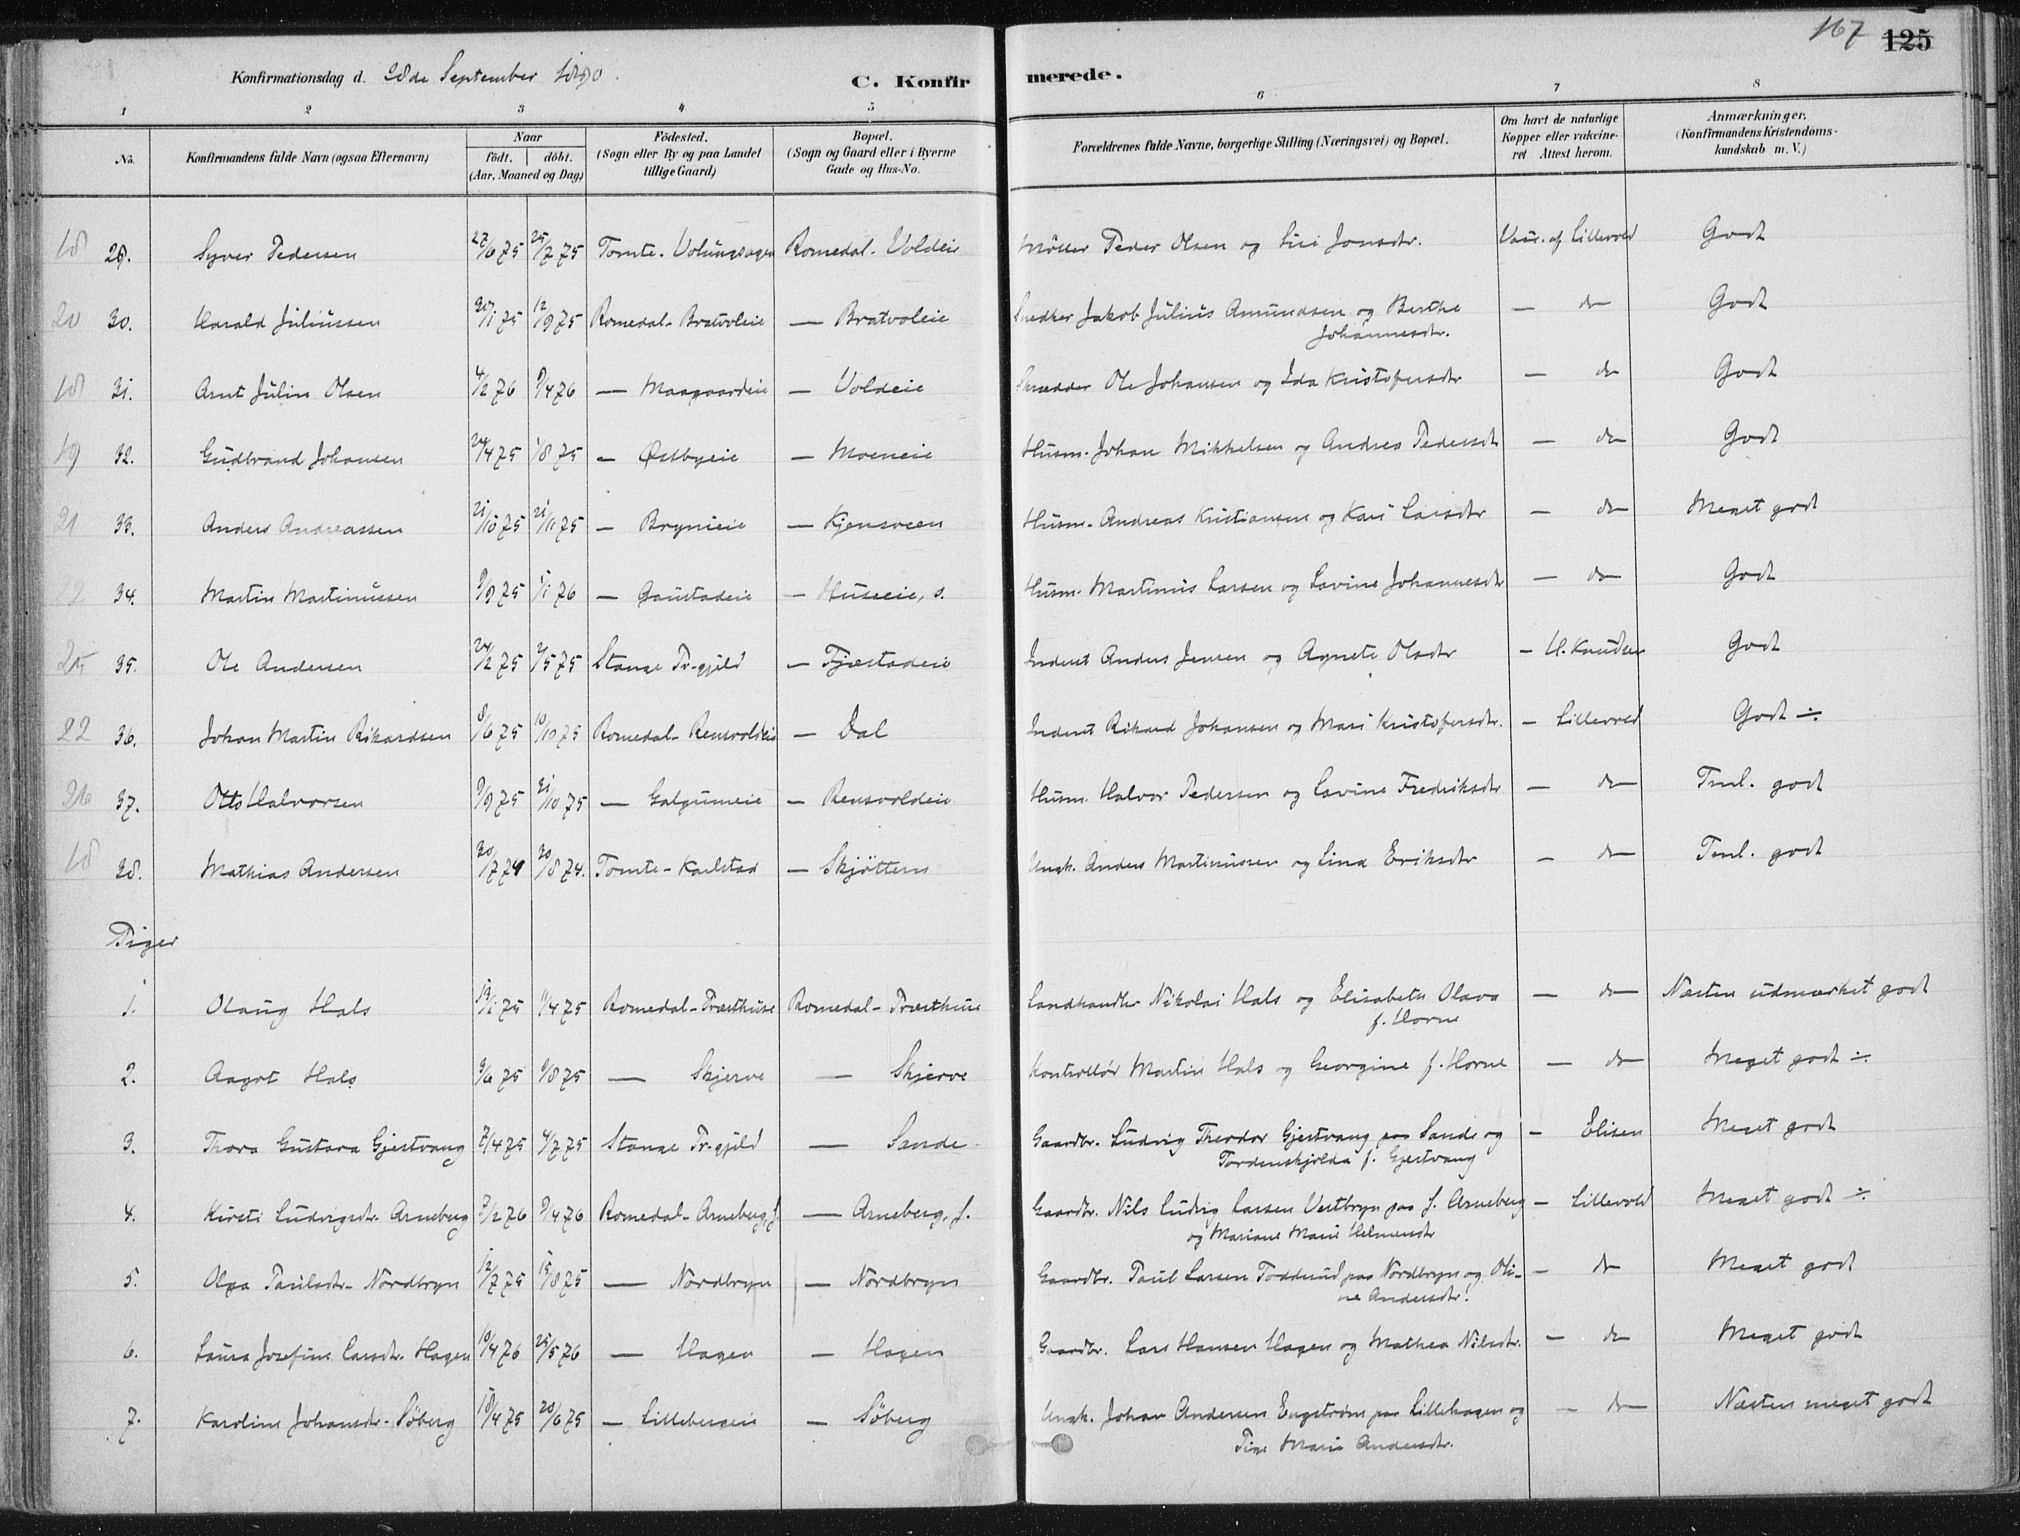 167 125
Konfirmationsdag d. 28de September 1890.
C. Konfirmerede.
1 2 3 4 5 6 7 8
No.
Konfirmandens fulde Navn (ogsaa Efternavn)
Naar
födt. döbt.
(Aar, Moaned og Dag)
Födested.
(Sogn eller By og paa Landet
tillige Gaard)
Bopæl.
(Sogn og Gaard eller i Byerne
Gade og Hus-No.
Forældrenes fulde Navne, borgerlige Stilling (Næringsvei) og Bopæl.
Om havt de naturlige
Kopper eller vakcine-
ret Attest herom.
Anmærkninger.
(Konfirmandens Kristendoms-
kundskab m. V.)
18 29. Syver Pedersen 27/6 75 25/7 75 Tomte - Romedal - Voldeie Møller Peder Olsen og Siri Jonsdtr. Vacc. af Lillevold Godt
20 30. Harald Juliussen 75 12/9 75 Romedal - Bratvoleie — Bratvoleie Snedker Jakob Julius Amundsen og Berthe — do Godt
Johannesdtr.
18 31. Arnt Julin Olsen 4/2 76 9/4 76 — Maagaardeie — Voldeie Skrædder Ole Johansen og Ida Kristofersdtr — do Godt
19 32. Gudbrand Johansen 24/4 75 1/8 75 — Østbyeie — Moeneie Husm. Johan Mikkelsen og Andrea Pedersdt — do Godt
21 33. Anders Andreassen 21/10 75 21/11 75 — Brynieie — Kjensveen Husm. Andreas Kristiansen og Kari Larsdtr — do Meget godt
22 34. Martin Martinussen 9/9 75 1/1 76 — Gaustadeie — Huseeie, s. Husm. Martinus Larsen og Lavine Johannesdtr — do Godt
25 35. Ole Andersen 24/2 75 2/5 75 Stange Pr-gjeld — Fjæstadeie Inderst Anders Jensen og Agnete Olsdtr — H. Knudsen Godt
22 36. Johan Martin Rikardsen 8/6 75 10/10 75 Romedal - Rensvoldeie — Dal Inderst Rikard Johansen og Mari Kristofersdtr. — Lillevold Godt ÷
37. Otto Halvorsen 9/9 75 31/10 75 — Galgumeie — Rensvoldeie Husm. Halvor Pedersen og Lavine Fredriksdtr — do Tml. godt
18 38. Mathias Andersen 30/7 74 30/8 74. Tomte - Karlstad — Skjøtten Ungk. Anders Martinussen og Lina Eriksdtr — do Tml. godt
Piger
1. Olaug Hals 19/1 75 11/4 75 Romedal - Præsthuse Romedal - Præsthuse Landhandler Nikolai Hals og Elisabeth Olava — do Næsten udmærket godt
f. Horne
2. Aagot Hals 9/6 75 9/8 75 — Skjerve — Skjerve Kontrollør Martin Hals og Georgine f. Horne — do Meget godt ÷
3. Thora Gustava Gjestvang 7/4 75 4/7 75 Stange Pr-gjeld — Sande Gaardbr. Ludvig Theodor Gjestvang paa Sande og — Elisen Meget godt
Tordenskjolda f. Gjestvang
4. Kirsti Ludvigsdtr. Arneberg 7/2 76 9/4 76 Romedal - Arneberg, f. — Arneberg, f. Gaardbr. Nils Ludvig Larsen Vestbryn paa f. Arneberg — Lillevold Meget godt ÷
og Mariane Marie Helmersdtr
5. Olga Paulsdtr. Nordbryn 12/7 75 15/8 75 — Nordbryn — Nordbryn Gaardbr. Paul Larsen Todderud paa Nordbryn og Oli- — do Meget godt
ne Andersdtr.
6. Laura Josefine Larsdtr. Hagen 10/4 76 25/5 76 — Hagen — Hagen Gaardbr. Lars Hansen Hagen og Mathea Nilsdtr. — do Meget godt
7. Karoline Johansdtr. Søberg 18/4 75 20/6 75 — Lillebergeie — Søberg Ungk. Johan Andersen Engstrøm paa Lillehagen og — do Næsten meget godt
Pige Marie Andersdtr.